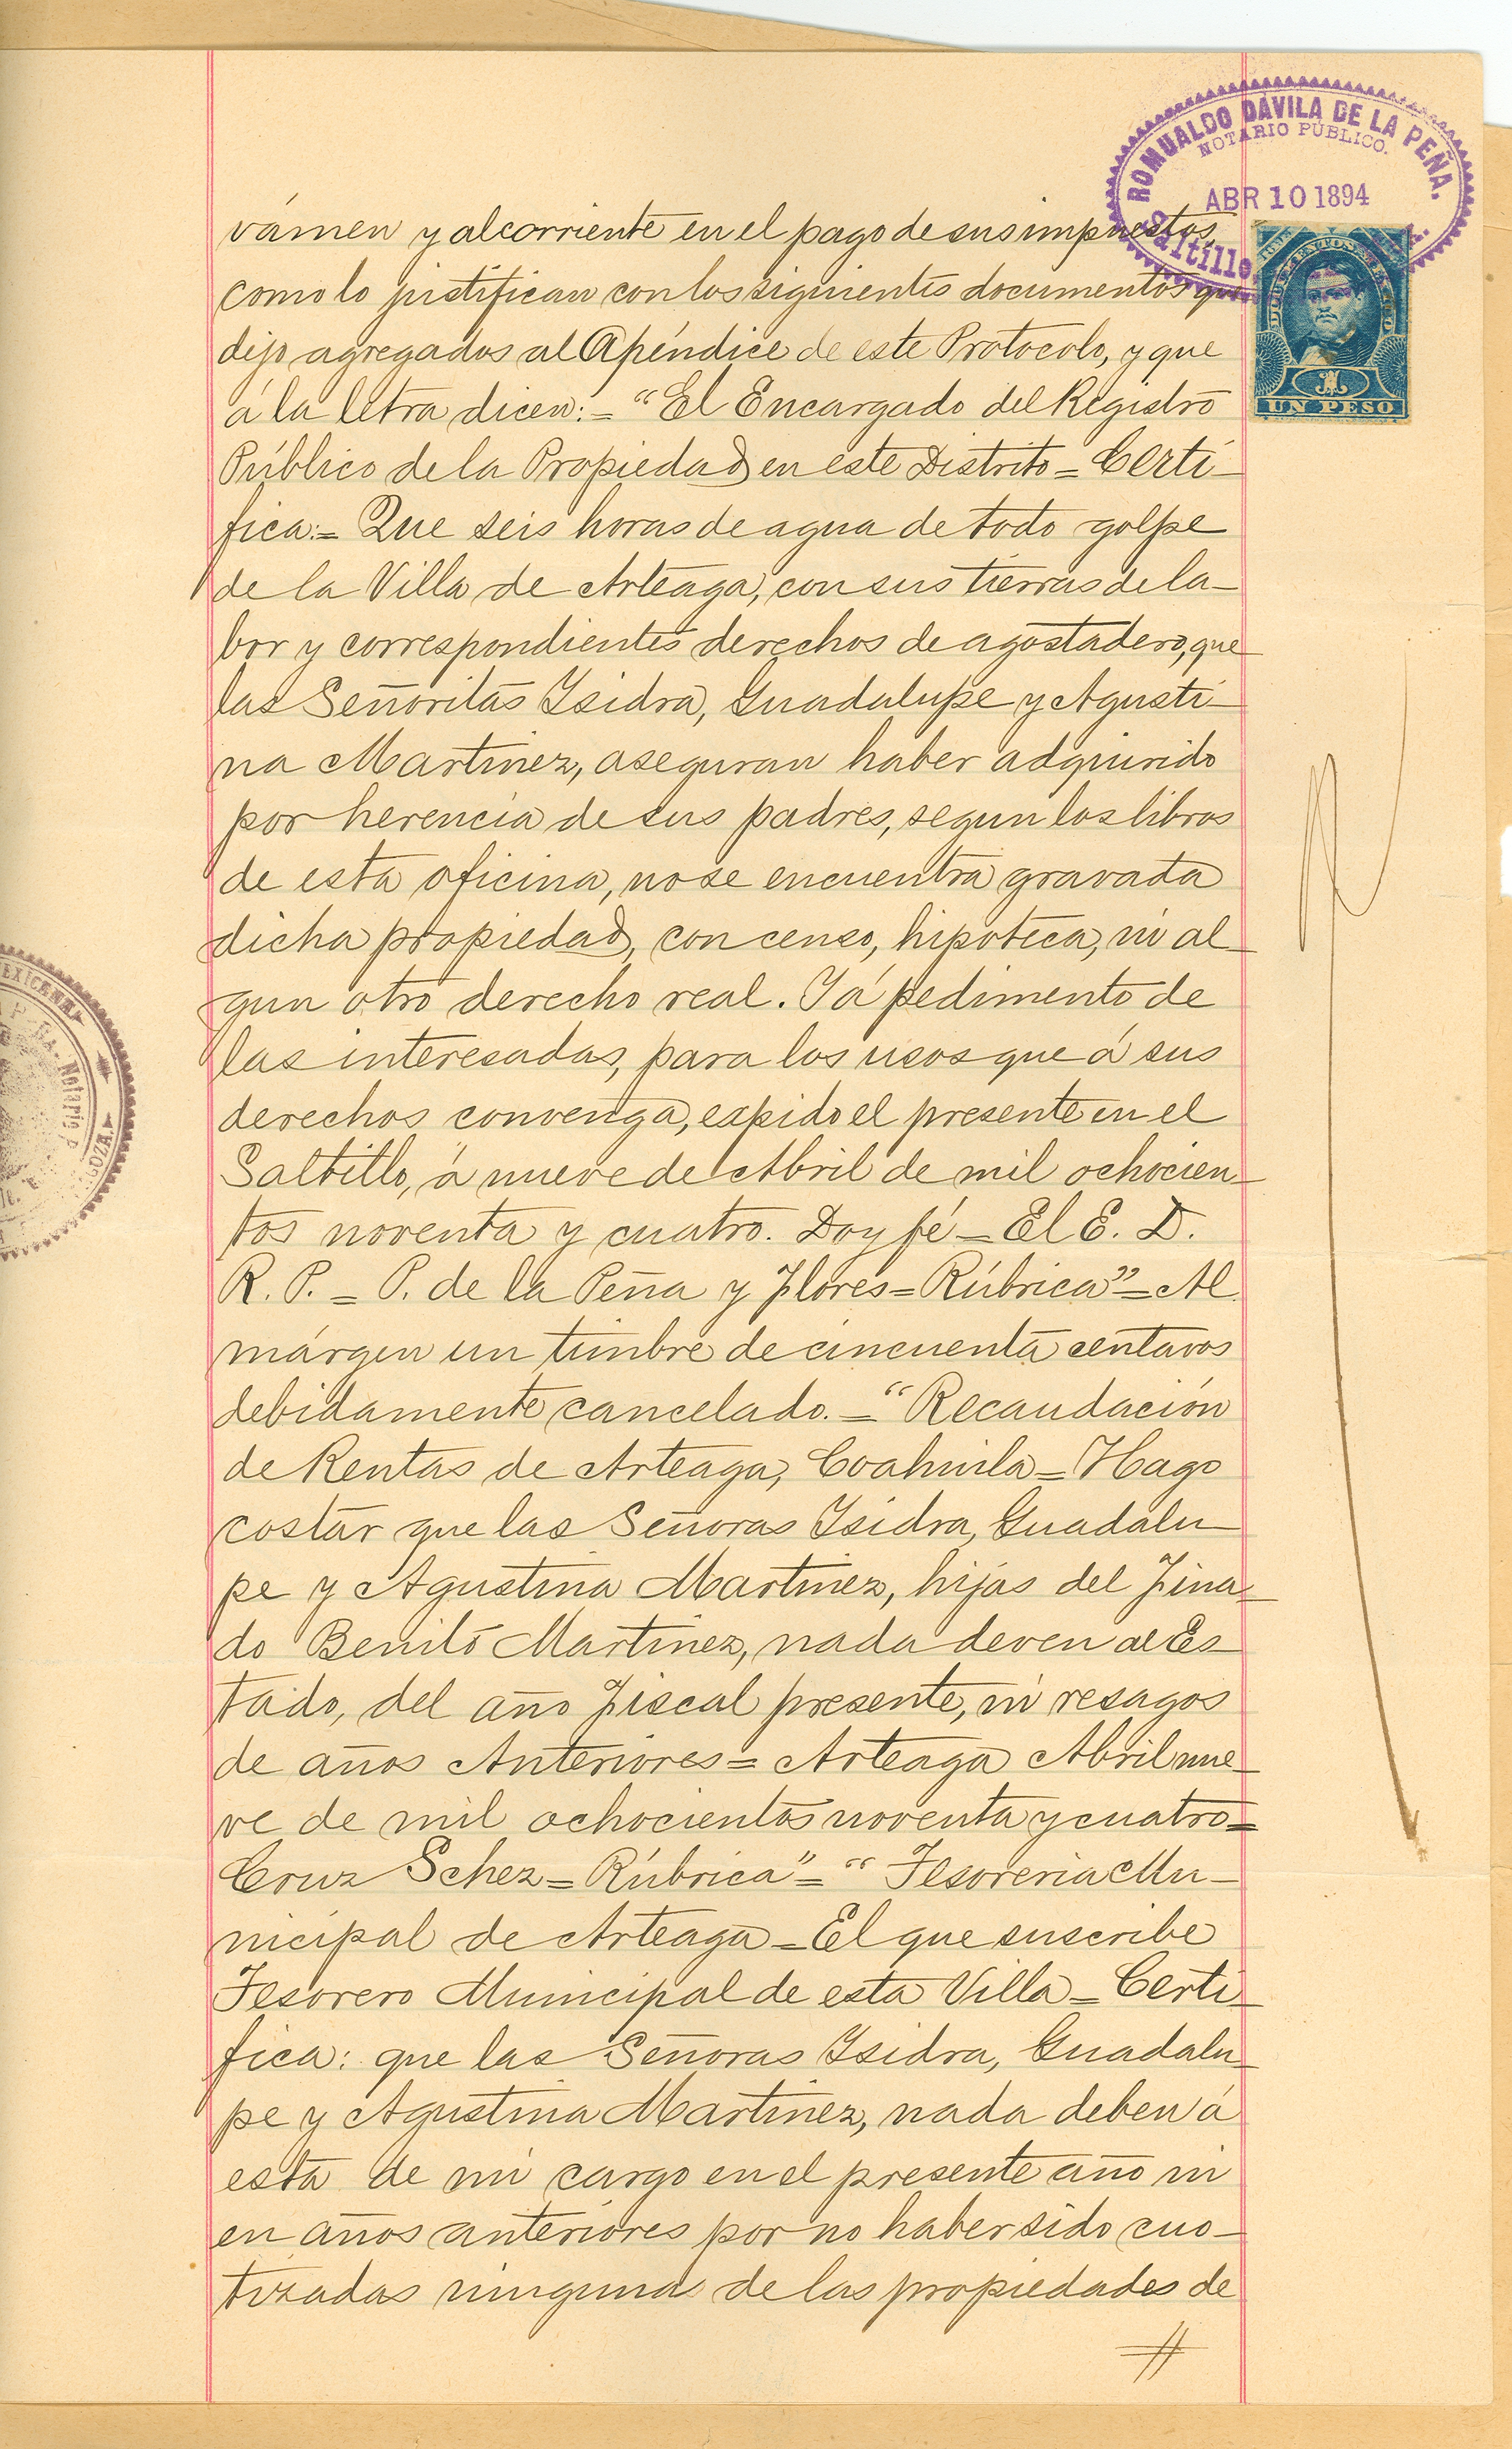 ROMUALDO DÁVILA DE LA PEÑA.
NOTARIO PÚBLICO.
ABR 10 1894
Saltillo
DOCUMENTOS
1
UN PESO
vámen y al corriente en el pago de sus impuestos,
como lo justifican con los siguientes documentos que
dejo agregados al Apéndice de este Protocolo, y que
á la letra dicen: = "El Encargado del Registro
Público de la Propiedad en este Distrito = Certi-
fica: = Que seis horas de agua de todo golpe
de la Villa de Arteaga, con sus tierras de la-
bor y correspondientes derechos de agostadero, que
las Señoritas Isidra, Guadalupe y Agusti-
na Martinez, aseguran haber adquirido
por herencia de sus padres, segun los libros
de esta oficina, no se encuentra gravada
dicha propiedad, con censo, hipoteca, ni al-
gun otro derecho real. Y á pedimento de
las interesadas, para los usos que á sus
derechos convenga, expido el presente en el
Saltillo, á nueve de Abril de mil ochocien-
tos noventa y cuatro. Doy fé = El E. D.
R. P. = P. de la Peña y Flores = Rúbrica" = Al
márgen un timbre de cincuenta centavos
debidamente cancelado. = "Recaudación
de Rentas de Arteaga, Coahuila = Hago
costar que las Señoras Isidra, Guadalu-
pe y Agustina Martinez, hijas del Fina-
do Benito Martinez, nada deven al Es-
tado, del año Fiscal presente, ni resagos
de años Anteriores = Arteaga Abril nue-
ve de mil ochocientos noventa y cuatro =
Cruz Schez = Rúbrica" = "Tesoreria Mu-
nicipal de Arteaga = El que suscribe
Tesorero Municipal de esta Villa = Certi-
fica: que las Señoras Isidra, Guadalu-
pe y Agustina Martinez, nada deben á
esta de mi cargo en el presente año ni
en años anteriores por no haber sido cuo-
tizadas ninguna de las propiedades de
MEXICANA
Notario P